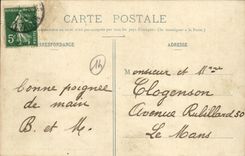 CARTE POSTALE
CORRESPONDANCE
ADRESSE
5
14
bonne poignée
de main
B. et M.
Monsieur et Mme
Clogenson
Avenue Rubillard 50
Le Mans